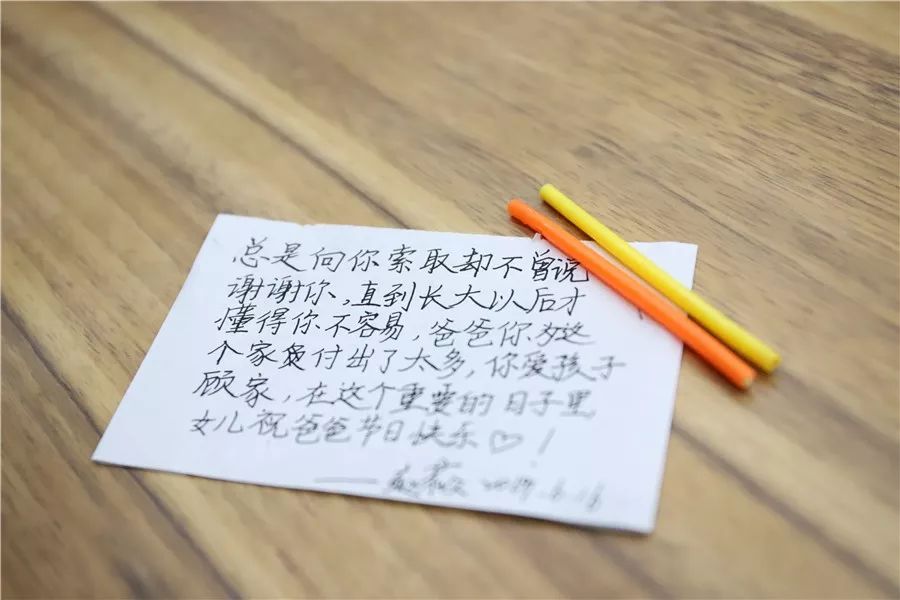 总是向你索取却不曾说
谢谢你,直到长大以后才
懂得你不容易,爸爸你为这
个家付出了太多,你爱孩子
顾家,在这个重要的日子里
女儿祝爸爸节日快乐♡!
—— 2019.6.16